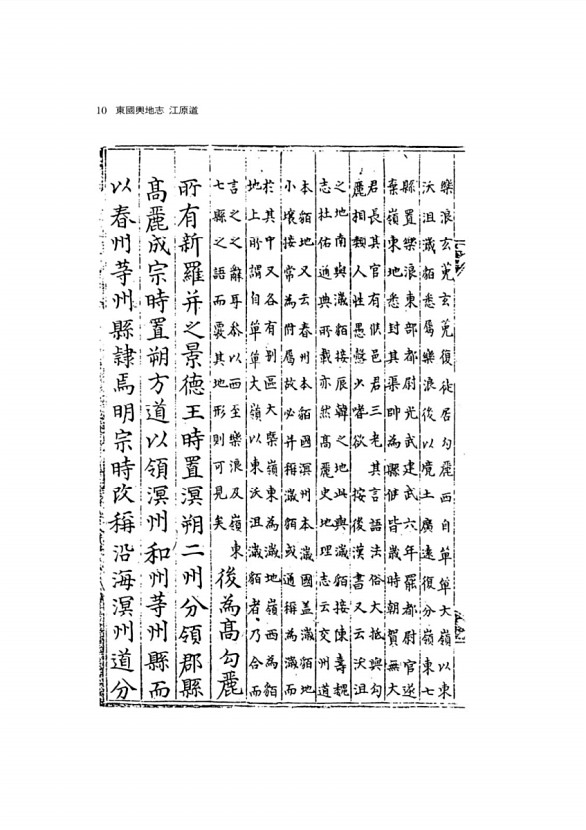 10 東國輿地志 江原道
樂浪玄菟玄菟復徙居勾麗西自單單大嶺以東
沃沮濊貊悉屬樂浪後以境土廣遠復分嶺東七
縣置樂浪東部都尉光武建武六年罷都尉官遂
棄嶺東地悉封其渠帥為縣侯皆歲時朝賀無大
君長其官有侯邑君三老其言語法俗大抵與勾
麗相類人性愚慤少嗜欲 按後漢書又云沃沮
之地南與濊貊接辰韓之地北與濊貊接陳壽魏
志杜佑通典所載亦然高麗史地理志云交州道
本貊地又云春州本貊國溟州本濊國盖濊貊地
小壤接常為附屬故必并稱濊貊或通稱為濊而
於其中又各有到區大槩嶺東為濊地嶺西為貊
地上所謂自單單大嶺以東沃沮濊貊者乃合而
言之之辭耳以西至樂浪及嶺東
七縣之語而其地形則可見矣
後為髙勾麗
所有新羅并之景德王時置溟朔二州分領郡縣
髙麗成宗時置朔方道以領溟州和州等州縣而
以春州等州縣隸焉明宗時改稱沿海溟州道分